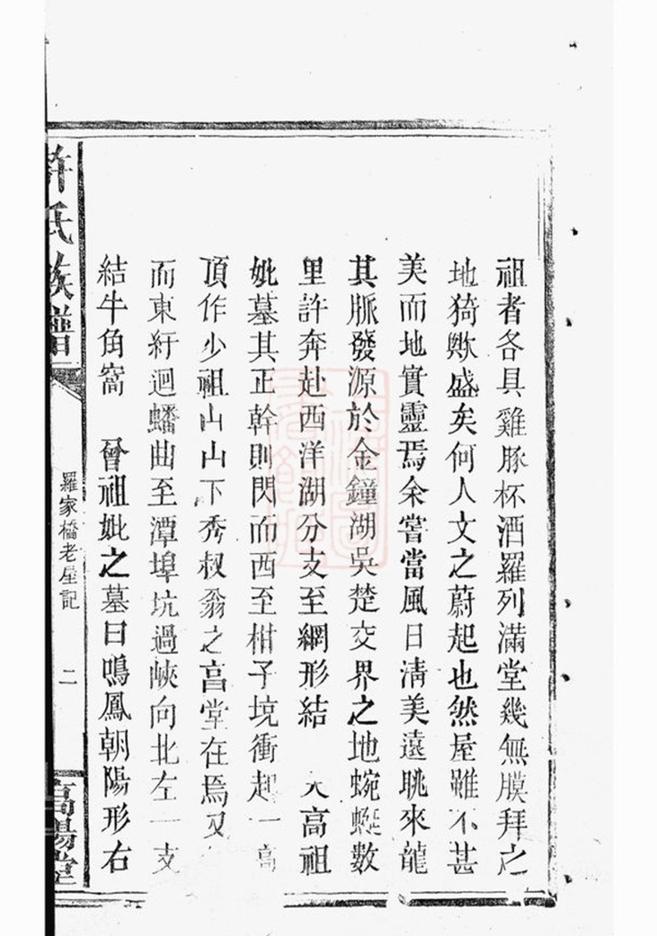 祖者各具雞豚杯酒羅列滿堂幾無膜拜之
地猗歟盛矣何人文之蔚起也然屋雖不甚
美而地實靈焉余嘗當風日淸美遠眺來龍
其脈發源於金鐘湖吳楚交界之地蜿蜒數
里許奔赴西洋湖分支至網形結 天高祖
妣墓其正幹則閃而西至柑子境衝起一高
頂作少祖山山下秀叔翁之㫖堂在焉又
而東紆迴蟠曲至潭埠坑過峽向北左一支
結牛角窩 曾祖妣之墓曰鳴鳳朝陽形右
許氏族譜
羅家橋老屋記
二
高陽堂